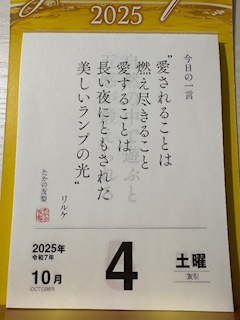 2025
今日の一言
“愛されることは
燃え尽きること
愛することは
長い夜にともされた
美しいランプの光”
リルケ
たかの友梨
2025年
令和7年
10月
OCTOBER
4
土曜
友引